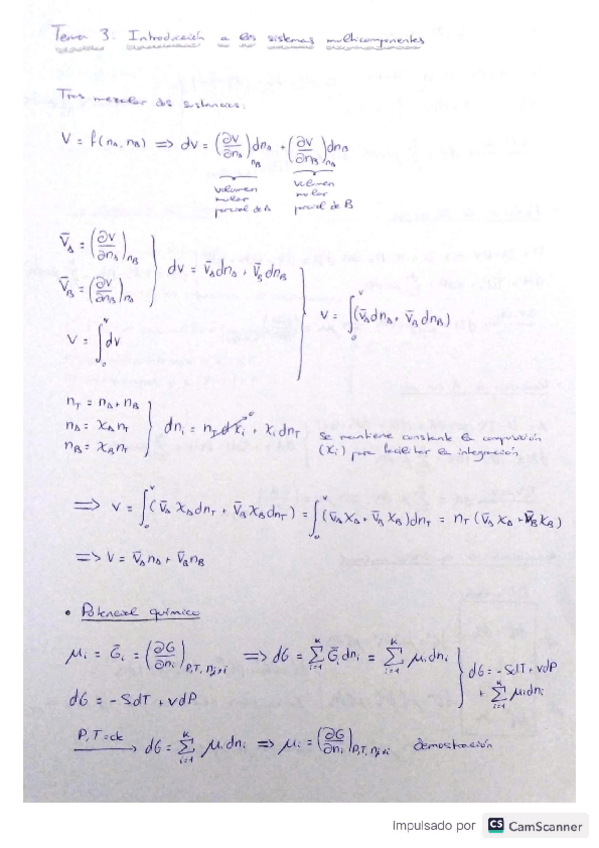 Tema 3. Introducción a los sistemas multicomponentes
Tras mezclar dos sustancias:
V = f(nA, nB) => dV = (∂V/∂nA)nB dnA + (∂V/∂nB)nA dnB
volumen molar parcial de A
volumen molar parcial de B
V̄A = (∂V/∂nA)nB
V̄B = (∂V/∂nB)nA
dV = V̄A dnA + V̄B dnB
V = ∫₀ⱽ dV
V = ∫₀ⱽ (V̄A dnA + V̄B dnB)
nT = nA + nB
nA = XA nT
nB = XB nT
dni = nT dXi + Xi dnT
0
Se mantiene constante la composición
(Xi) para facilitar la integración
=> V = ∫₀ⱽ (V̄A XA dnT + V̄B XB dnT) = ∫₀ⱽ (V̄A XA + V̄B XB) dnT = nT (V̄A XA + V̄B XB)
=> V = V̄A nA + V̄B nB
• Potencial químico
μi = Ḡi = (∂G/∂ni)P,T,nj≠i => dG = Σᵢ₌₁ᴷ Ḡi dni = Σᵢ₌₁ᴷ μi dni
dG = -SdT + VdP
dG = -SdT + VdP
+ Σᵢ₌₁ᴷ μi dni
P,T = ctk → dG = Σᵢ₌₁ᴷ μi dni => μi = (∂G/∂ni)P,T,nj≠i demostración
Impulsado por CS CamScanner